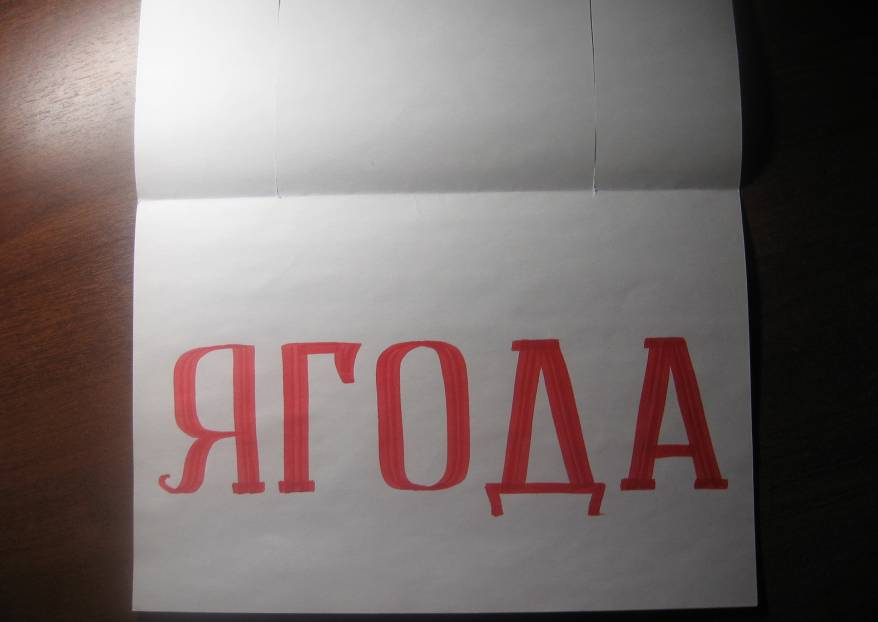 ЯГОДА